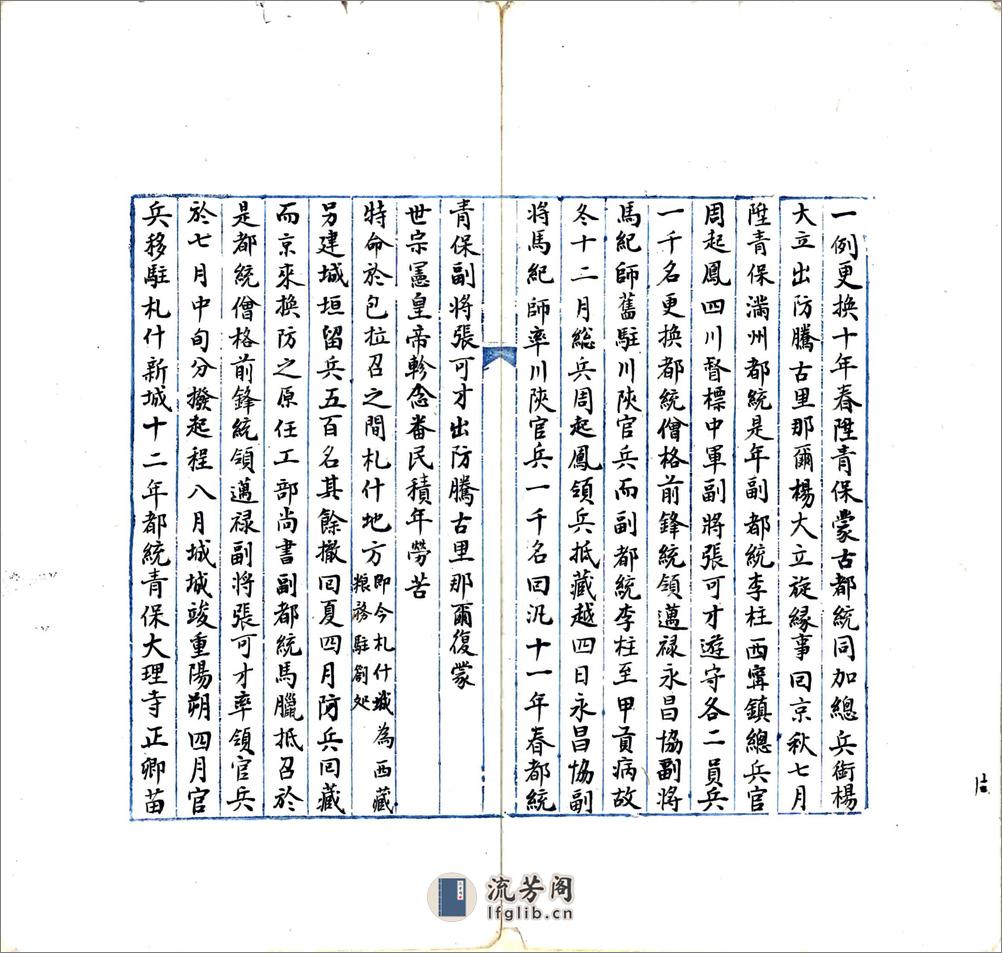 一例更换十年春陞青保蒙古都統同加總兵銜楊
大立出防騰古里那爾楊大立旋緣事囘京秋七月
陞青保滿州都統是年副都統李柱西寧鎮總兵官
周起鳳四川督標中軍副將張可才遊守各二員兵
一千名更換都統僧格前鋒統領邁禄永昌協副將
馬紀師舊駐川陝官兵而副都統李柱至甲貢病故
冬十二月総兵周起鳳領兵抵藏越四日永昌恊副
將馬紀師率川陝官兵一千名囘汛十一年春都統
青保副將張可才出防騰古里那爾復蒙
世宗憲皇帝軫念番民積年勞苦
特命於包拉召之間札什地方即今札什城為西藏
粮務駐劄处
另建城垣留兵五百名其餘撤囘夏四月防兵囘藏
而京來換防之原任工部尚書副都統馬臘抵召於
是都統僧格前鋒統領邁禄副將張可才率領官兵
於七月中旬分撥起程八月城城竣重陽朔四月官
兵移駐札什新城十二年都統青保大理寺正卿苗
流芳阁
lfglib.cn